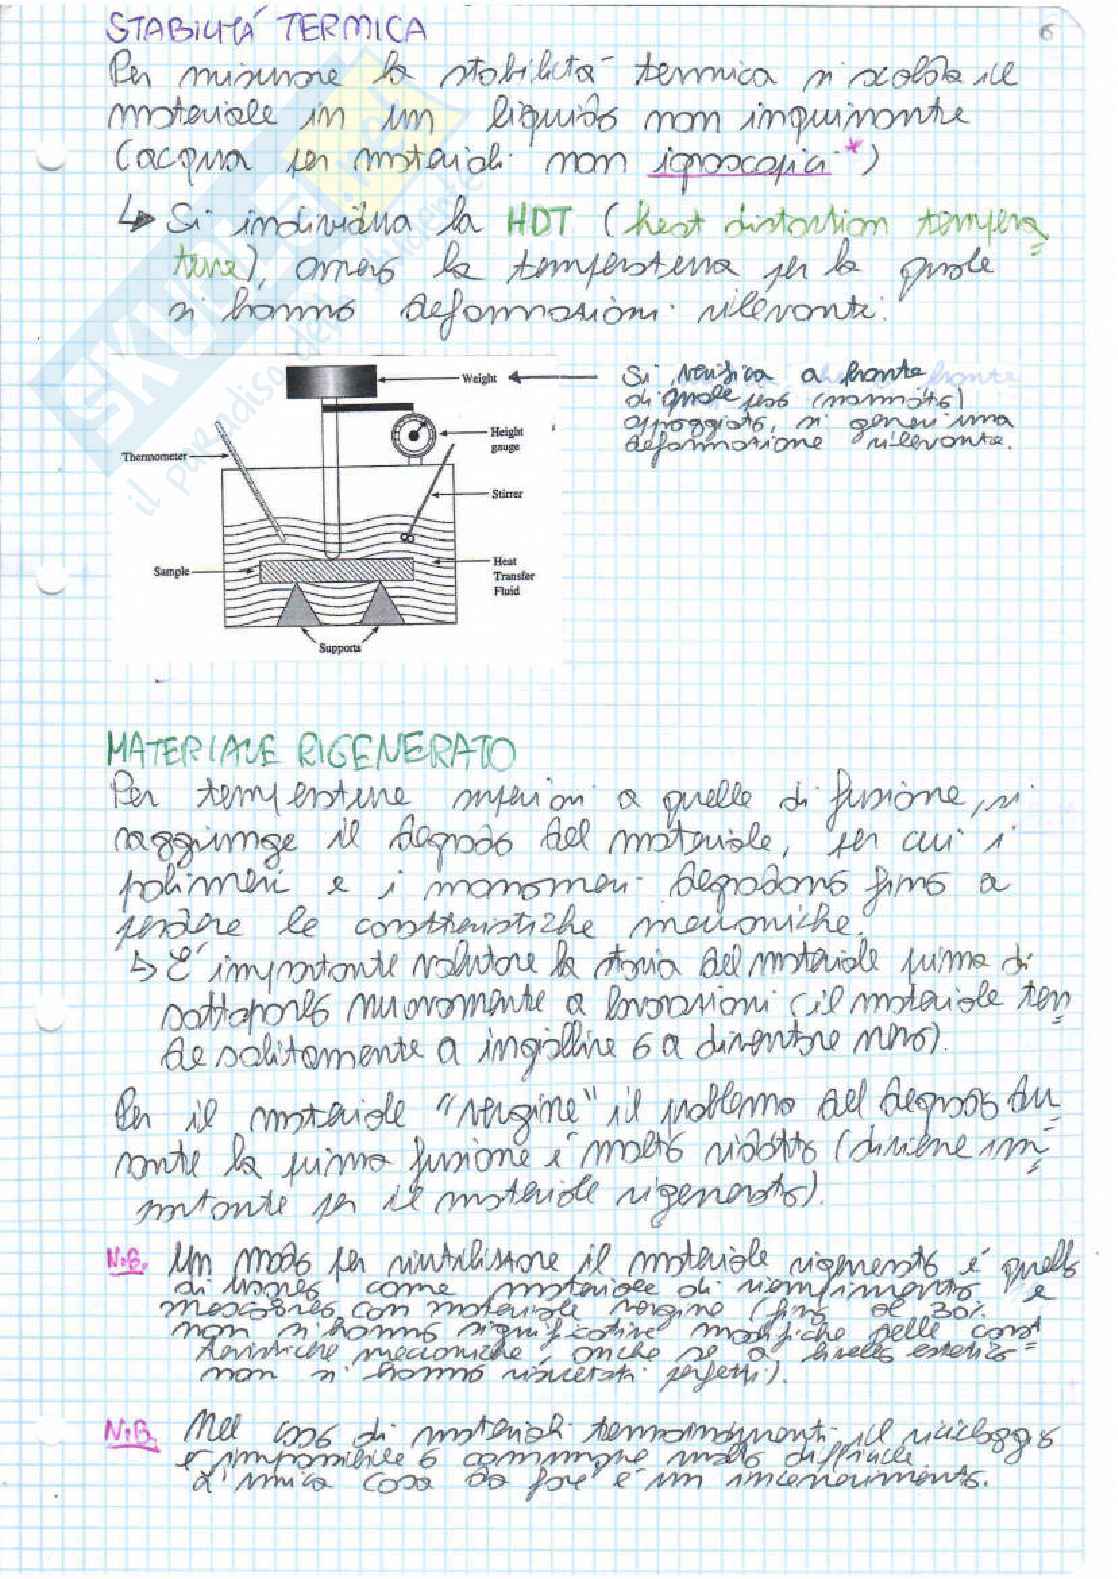 STABILITÁ TERMICA
6
Per misurare la stabilità termica si scalda il
materiale in un liquido non inquinante
(acqua per materiali non igroscopici *)
↳ Si individua la HDT (heat distortion tempera=
ture), ovvero la temperatura per la quale
si hanno deformazioni rilevanti.
Weight
Height
gauge
Thermometer
Stirrer
Sample
Heat
Transfer
Fluid
Supports
Si verifica a fronte
di quale peso (normato)
appoggiato, si generi una
deformazione rilevante.
MATERIALE RIGENERATO
Per temperature superiori a quelle di fusione, si
raggiunge il degrado del materiale, per cui i
polimeri e i monomeri degradano fino a
perdere le caratteristiche meccaniche.
↳ É importante valutare la storia del materiale prima di
sottoporlo nuovamente a lavorazioni (il materiale ten=
de solitamente a ingiallire o a diventare nero).
Per il materiale "vergine" il problema del degrado du=
rante la prima fusione é molto ridotto (diviene im=
portante per il materiale rigenerato).
N.B. Un modo per riutilizzare il materiale rigenerato é quello
di usarlo come materiale di riempimento e
mescolarlo con materiale vergine (fino al 30%
non si hanno significative modifiche nelle carat=
teristiche meccaniche, anche se a livello estetico
non si hanno risultati perfetti).
N.B. Nel caso di materiali termoindurenti il riciclaggio
é impossibile o comunque molto difficile.
L'unica cosa da fare é un incenerimento.
SKUOLA.NET
il paradiso dello studente